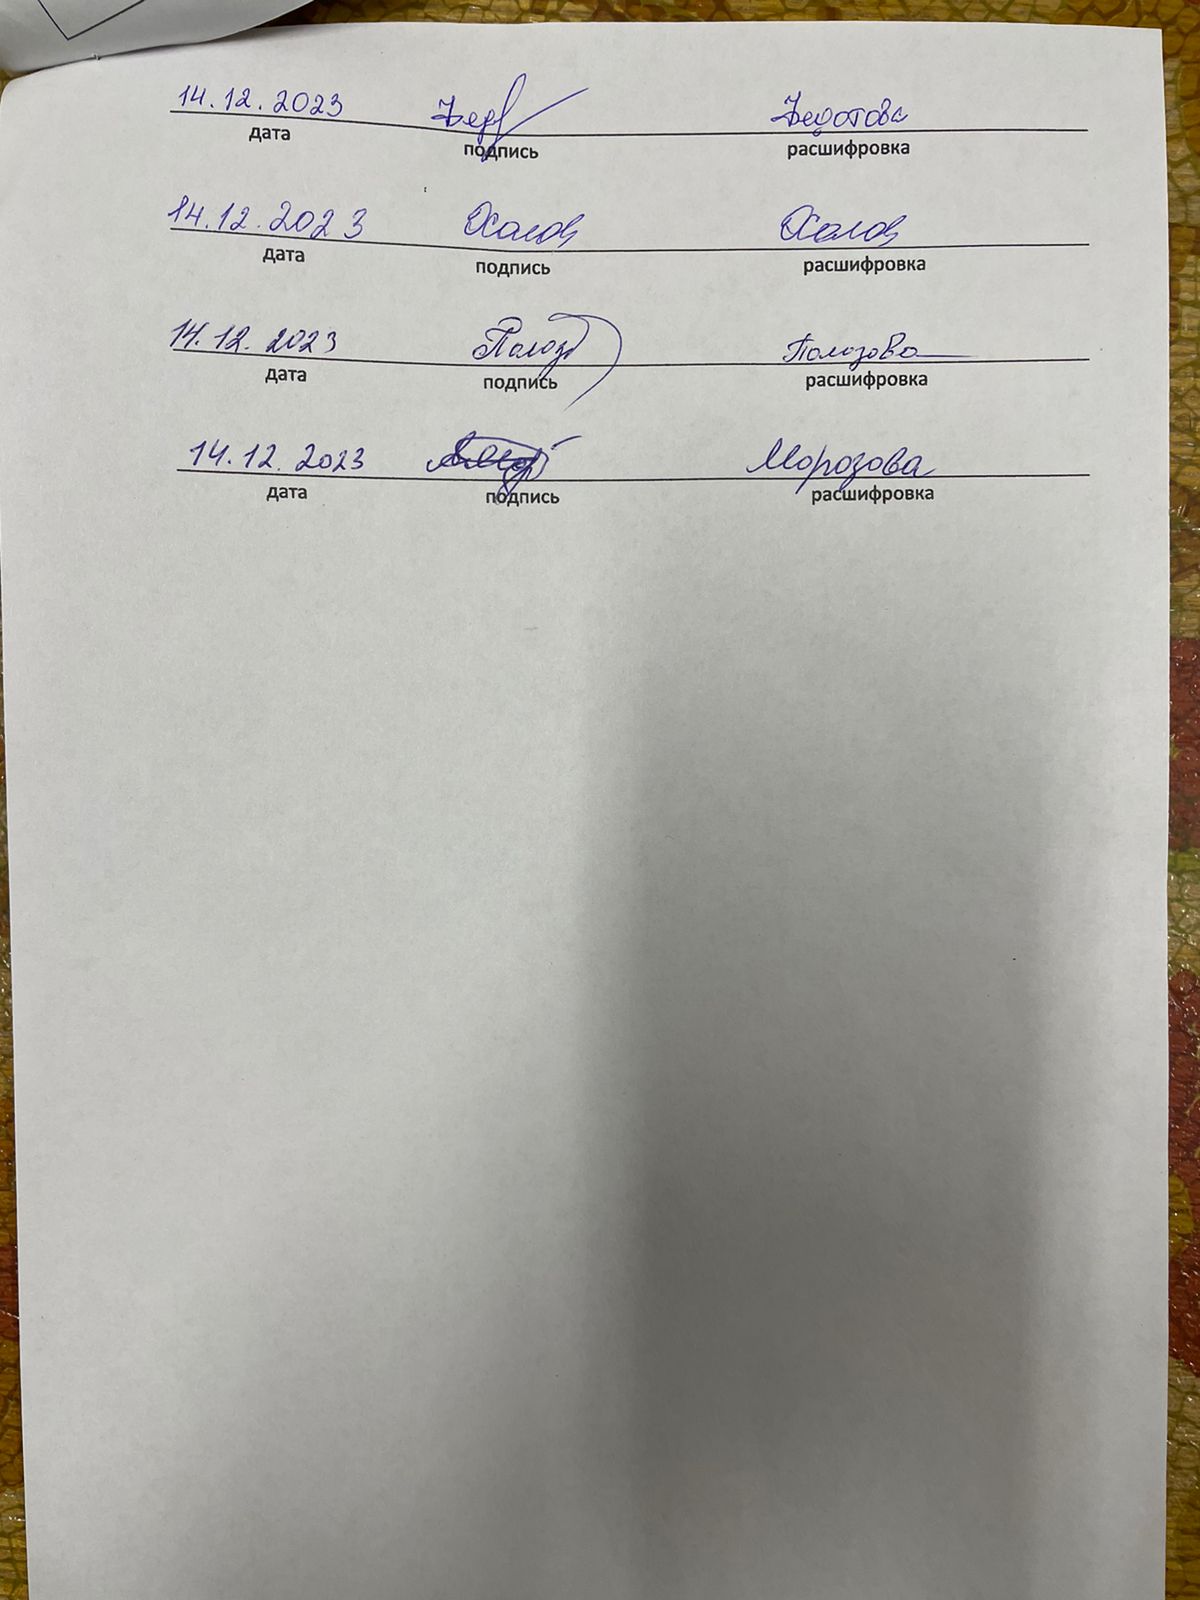 14.12.2023 Федотова
дата подпись расшифровка
14.12.2023
дата подпись расшифровка
14.12.2023 Полоз Полозова
дата подпись расшифровка
14.12.2023 Морозова
дата подпись расшифровка